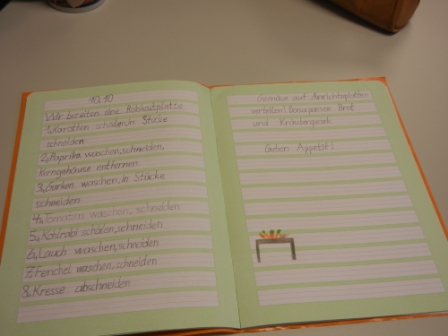 10.10
Wir bereiten eine Rohkostplatte
1. Karotten schälen, in Stücke
schneiden
2. Paprika waschen, schneiden,
Kerngehäuse entfernen
3. Gurken waschen, in Stücke
schneiden
4. Tomaten waschen, schneiden
5. Kohlrabi schälen, schneiden
6. Lauch waschen, schneiden
7. Fenchel waschen, schneiden
8. Kresse abschneiden
Gemüse auf Anrichteplatten
verteilen! Dazu passen Brot
und Kräuterquark
Guten Appetit!